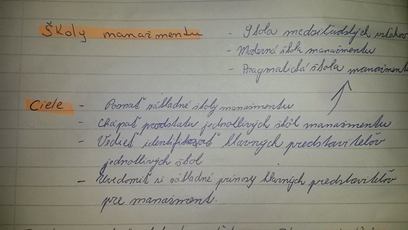 Školy manažmentu - Škola medziľudských vzťahov
- Moderná škola manažmentu
- Pragmatická škola manažmentu
Ciele - Poznať základné školy manažmentu
- Chápať podstatu jednotlivých škôl manažmentu
- Vedieť identifikovať hlavných predstaviteľov
jednotlivých škol
- Uvedomiť si základné prínosy hlavných predstaviteľov
pre manažment.